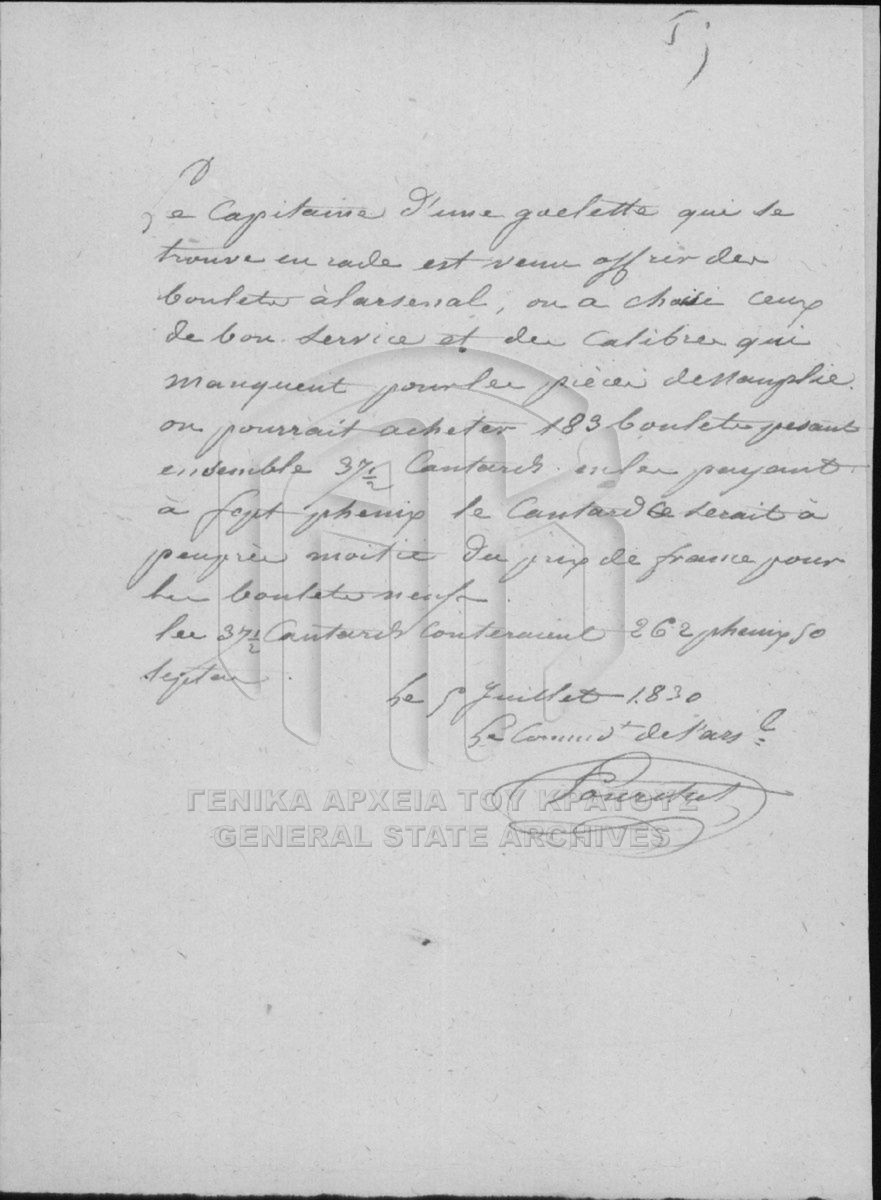 5)
Le Capitaine d'une goelette qui se
trouve en rade est venu offrir des
boulets à l'arsenal, on a choisi ceux
de bon service et des calibres qui
manquent pour les pièces de Nauplie.
on pourrait acheter 183 boulets pesant
ensemble 37 1/2 Cantards. en les payant
à sept phenix le Cantard Ce serait à
peuprès moitié du prix de france pour
les boulets neufs.
les 37 1/2 Cantards Couteraient 262 phenix 50
lepta.
Le 5 Juillet 1830
Le Commdt de l'arsl
ΓΕΝΙΚΑ ΑΡΧΕΙΑ ΤΟΥ ΚΡΑΤΟΥΣ
GENERAL STATE ARCHIVES